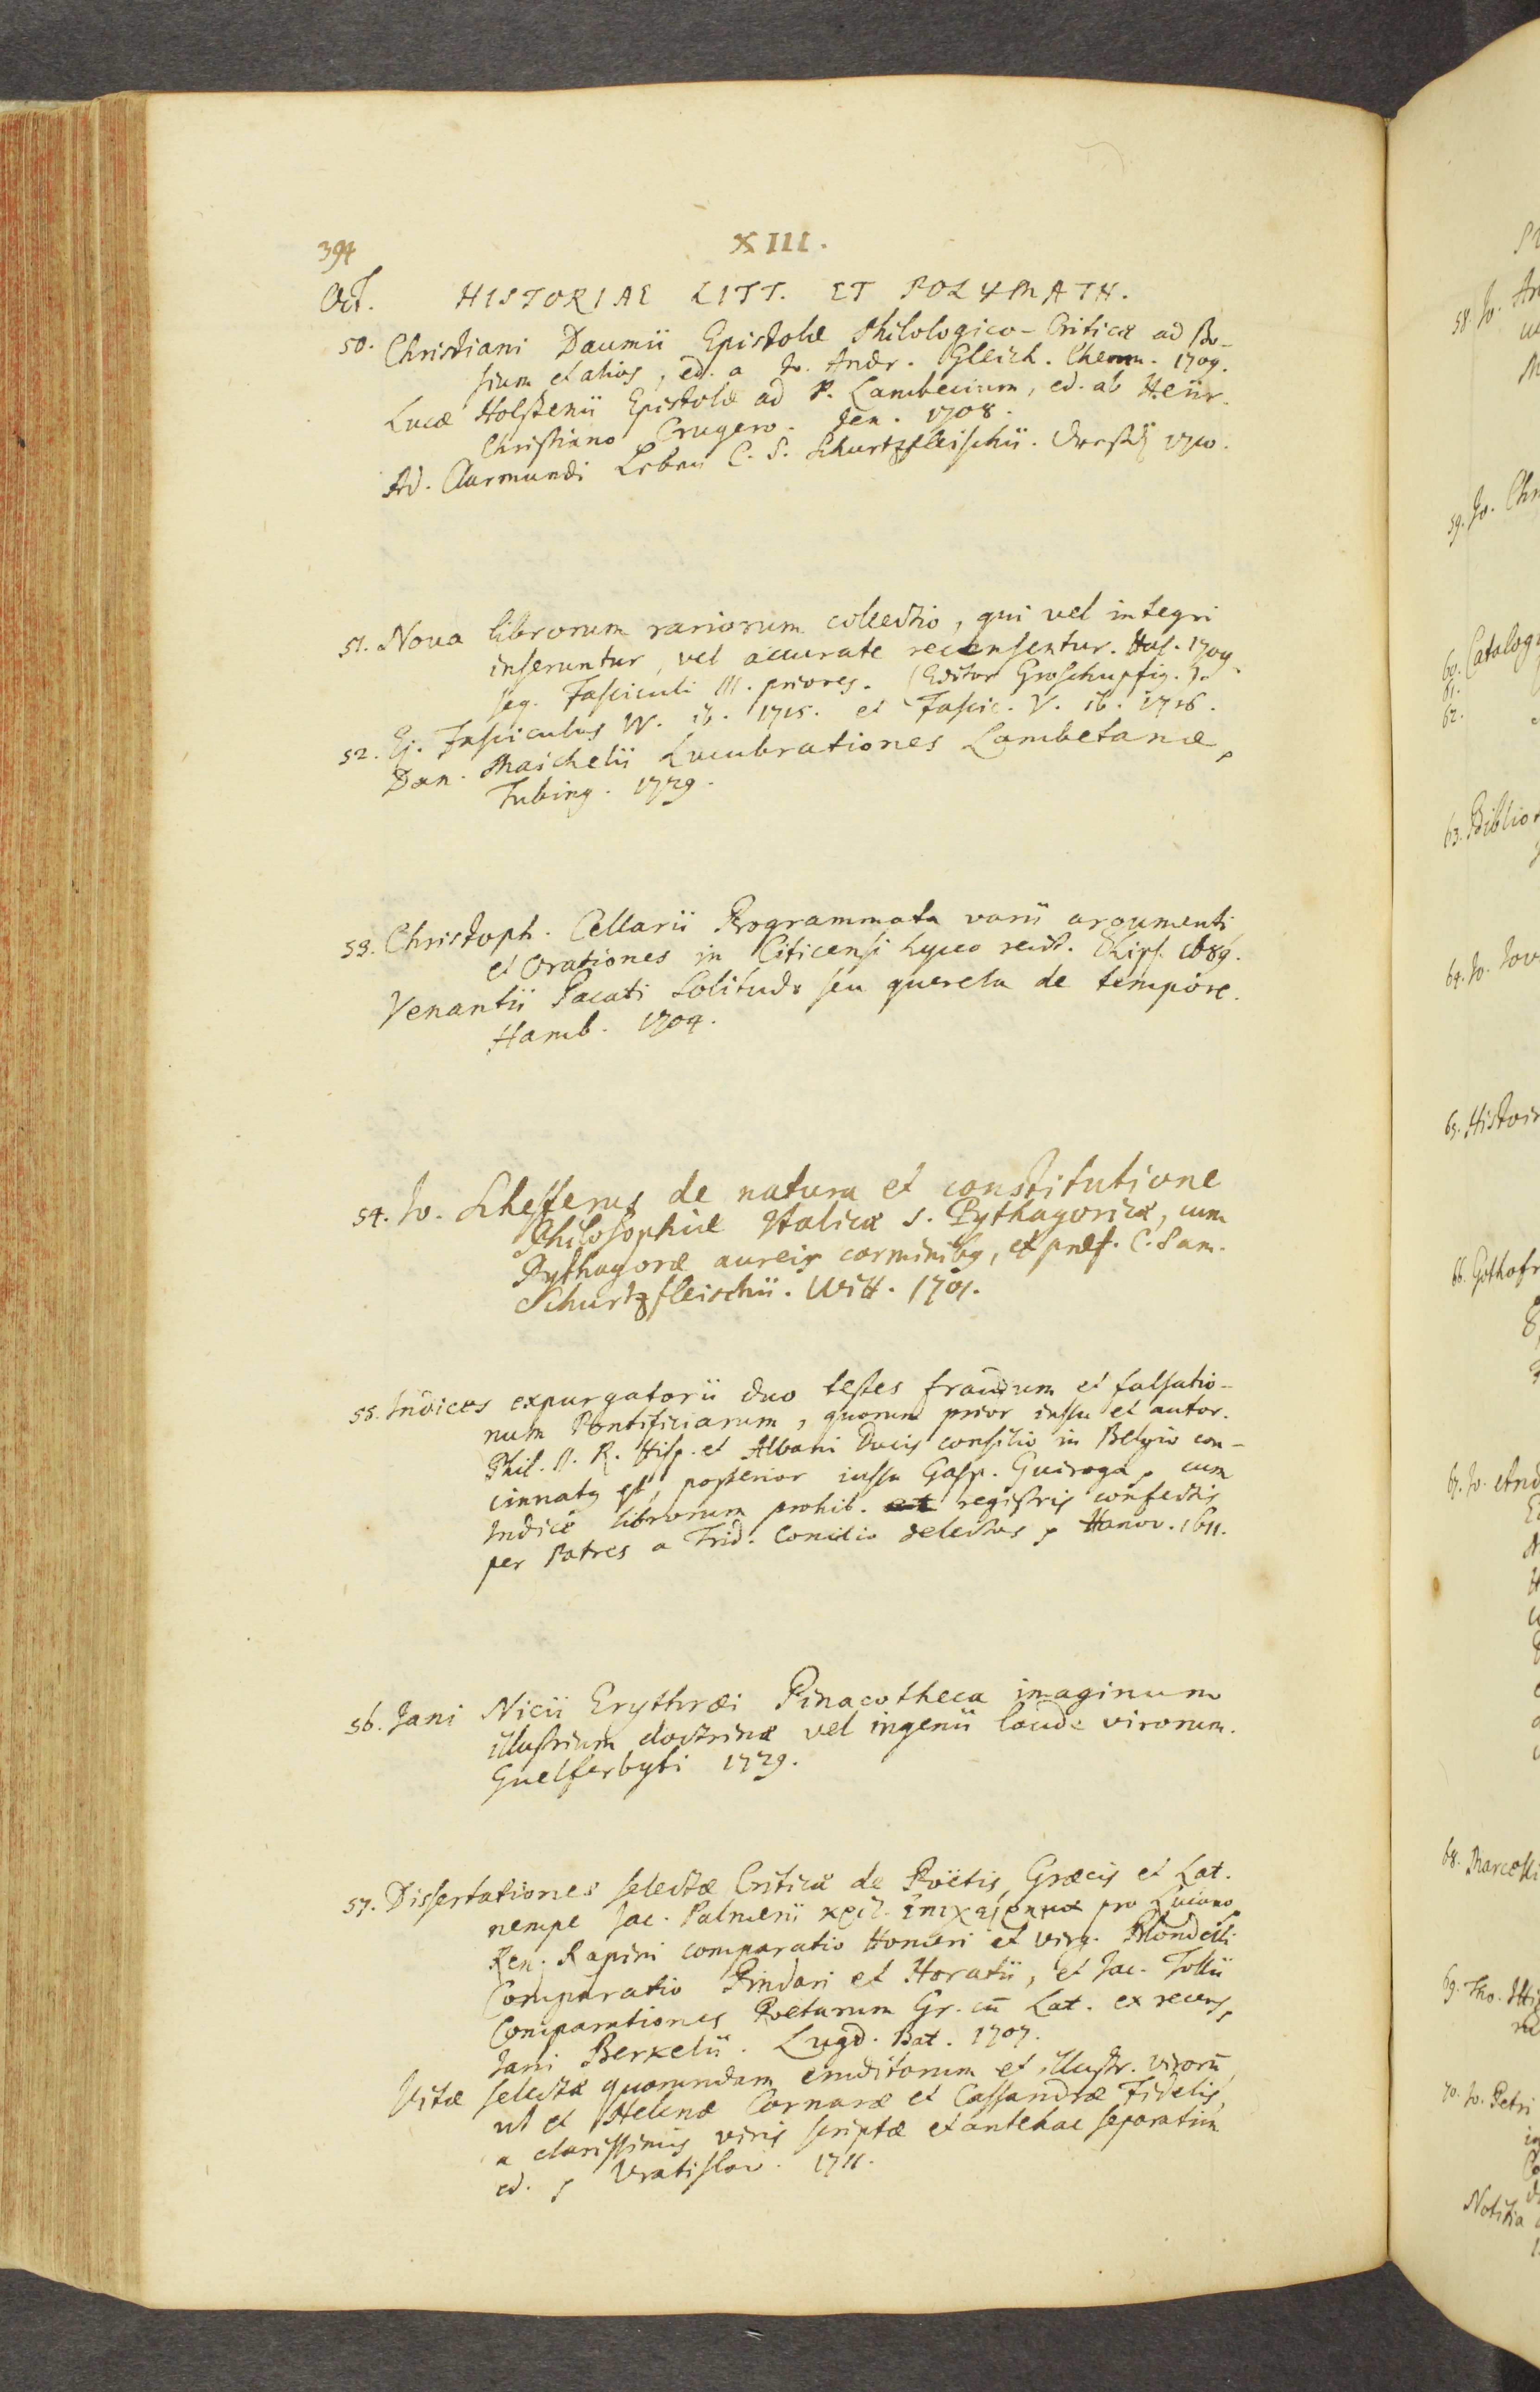 394
XIII.
Oct. HISTORIAE LITT. ET POLYMATH.
50. Christiani Daumii Epistolæ Philologico-Criticæ ad Bo-
sium et alios, ed. a Jo. Andr. Gleich. Chemn. 1709.
Lucæ Holstenii Epistolæ ad P. Lambecium, ed. ab Henr.
Christiano Crugero. Jen. 1708.
Ad. Clarmundi Leben C. S. Schurtzfleischii. Dreßd. 1710.
51. Nova librorum rariorum collectio, qui vel integri
inseruntur, vel accurate recensentur. Hal. 1709.
seq. Fasciculi III. priores. (Editor Groschupfig.).
52. Ej. Fasciculus IV. ib. 1715. et Fascic. V. ib. 1716.
Dan. Maichelii Lucubrationes Lambetanæ,
Tubing. 1729.
53. Christoph. Cellarii Programmata varii argumenti
et Orationes in Citicensi Lyceo recit. Lips. 1689.
Venantii Pacati Solitudo seu querela de tempore.
Hamb. 1704.
54. Jo. Schefferus de natura et constitutione
Philosophiæ Italicæ s. Pythagoricæ, cum
Pythagoræ aureis carminibg, et præf. C. Sam.
Schurtzfleischii. Witt. 1701.
55. Indices expurgatorii duo testes fraudum et falsatio-
num Pontificiarum, quorum prior iussu et autor.
Phil. II. R. Hisp. et Albani Ducis consilio in Belgio con-
cinnatg est, posterior iussu Gasp. Quiroga, cum
Indice librorum prohib. et registris confectis
per Patres a Trid. Concilio delectos, Hanov. 1611.
56. Jani Nicii Erythræi Pinacotheca imaginum
illustrium doctrinæ vel ingenii laude virorum.
Guelferbyti 1729.
57. Dissertationes selectæ Criticæ de Poëtis, Græcis et Lat.
nempe Jac. Palmerii pro Lucano,
Ren. Rapini comparatio Homeri et Virg. Blondelli
Comparatio Pindari et Horatii, et Jac. Tollii
Comparationes Poetarum Gr. cū Lat. ex recens,
Jani Berkelii. Lugd. Bat. 1707.
Vitæ selectæ quorundam eruditorum et illustr. virorū,
ut et Helenæ Cornaræ et Cassandræ Fidelis,
a clarissimis viris scriptæ et antehac separatim
ed., Vratislav. 1711.
58. Jo.
59. Jo. Chr
60. Catalog
61.
62.
63. Biblio
64. Jo.
65. Histoir
66. Gothofr
67. Jo. And
68. Marcelli
69. Tho. Itti
70. Jo. Petri
Notitia